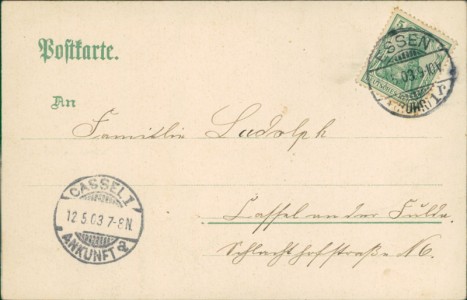 Postkarte.
ESSEN
5.03.9-10V
(RUHR) 1
An
Familie Ludolph
CASSEL 1
12.5.03 7-8N.
ANKUNFT
Cassel an der Fulda
Schlachthofstraße 16.